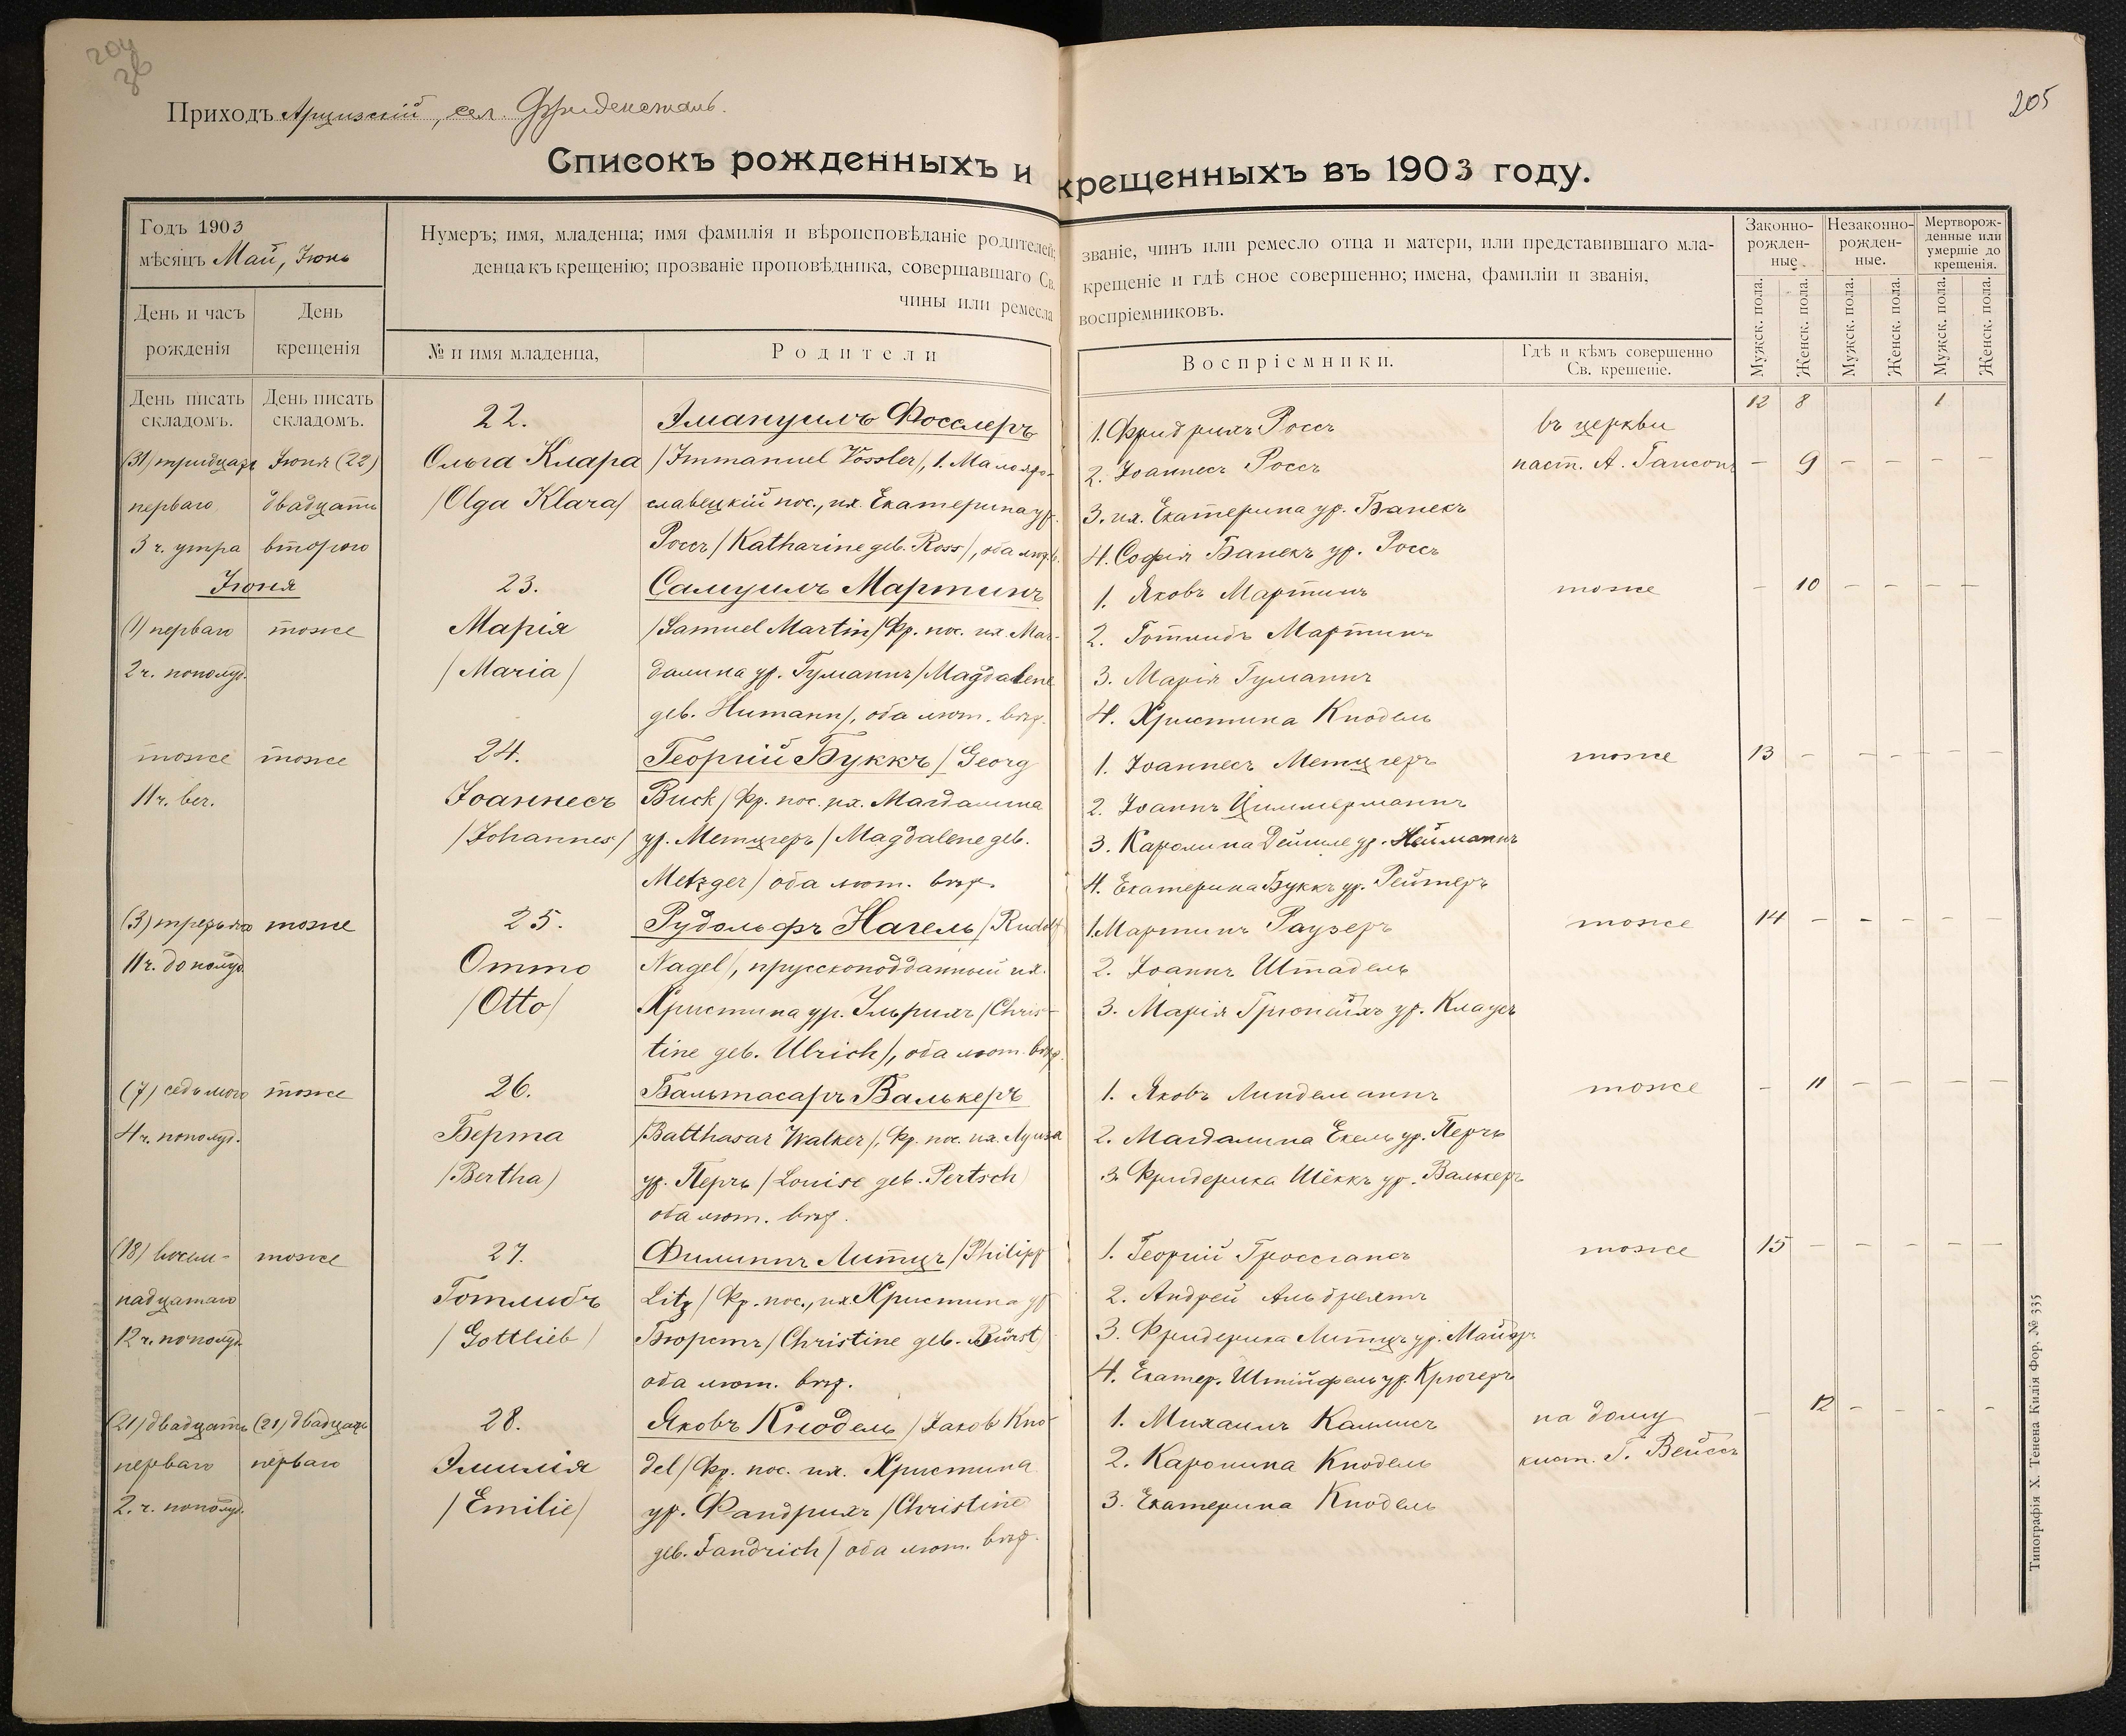 204
36
205
Приходъ Арцизскій, сел. Фриденсталь.
Списокъ рожденныхъ и крещенныхъ въ 1903 году.
Годъ 1903
мѣсяцъ Май, Іюнь
День и часъ рожденія
День крещенія
Нумеръ; имя, младенца; имя фамилія и вѣроисповѣданіе родителей; званіе, чинъ или ремесло отца и матери, или представившаго мла-
денца къ крещенію; прозваніе проповѣдника, совершавшаго Св. крещеніе и гдѣ сное совершенно; имена, фамиліи и званія,
чины или ремесла воспріемниковъ.
№ и имя младенца,
Родители
Воспріемники.
Гдѣ и кѣмъ совершенно
Св. крещеніе.
Законно-
рожден-
ные.
Незаконно-
рожден-
ные.
Мертворож-
денные или
умершіе до
крещенія.
Мужск. пола.
Женск. пола.
Мужск. пола.
Женск. пола.
Мужск. пола.
Женск. пола.
День писать
складомъ.
День писать
складомъ.
12 8 1
(31) тридцать
перваго
3 ч. утра
Іюня (22)
двадцать
второго
22.
Ольга Клара
/Olga Klara/
Эмануилъ Фосслеръ
/Immanuel Vossler/, 1. Малояро-
славецкій пос., их. Екатерина ур.
Россъ /Katharine geb. Ross/, оба лют.
1. Фридрихъ Россъ
2. Іоаннесъ Россъ
3. их. Екатерина ур. Банекъ
4. Софія Банекъ ур. Россъ
въ церкви
паст. А. Гансонъ
— 9 — — — —
Іюня
(1) перваго
2 ч. пополуд.
тоже
23.
Марія
/Maria/
Самуилъ Мартинъ
/Samuel Martin/ Фр. пос. их. Маг-
далина ур. Гуманнъ /Magdalene
geb. Humann/, оба лют. вѣр.
1. Яковъ Мартинъ
2. Готлибъ Мартинъ
3. Марія Гуманнъ
4. Христина Кнодель
тоже
— 10 — — — —
тоже
11 ч. веч.
тоже
24.
Іоаннесъ
/Johannes/
Георгій Буккъ /Georg
Buck/ Фр. пос. их. Магдалина
ур. Метцгеръ /Magdalene geb.
Metzger/ оба лют. вѣр.
1. Іоаннесъ Метцгеръ
2. Іоаннъ Циммерманнъ
3. Каролина Дейшле ур. Нейманнъ
4. Екатерина Буккъ ур. Рейтеръ
тоже
13 — — — — —
(3) третьяго
11 ч. до полуд.
тоже
25.
Отто
/Otto/
Рудольфъ Нагель /Rudolf
Nagel/, прусскоподданный их.
Христина ур. Ульрихъ /Chris-
tine geb. Ulrich/, оба лют. вѣр.
1. Мартинъ Раузеръ
2. Іоаннъ Штадель
3. Марія Грюнейхъ ур. Клаусъ
тоже
14 — — — — —
(7) седьмого
4 ч. пополуд.
тоже
26.
Берта
/Bertha/
Бальтасаръ Валькеръ
/Balthasar Walker/, Фр. пос. их. Луиза
ур. Перчъ /Louise geb. Pertsch/
оба лют. вѣр.
1. Яковъ Линдеманнъ
2. Магдалина Екель ур. Перчъ
3. Фридерика Шёккъ ур. Валькеръ
тоже
— 11 — — — —
(18) восем-
надцатаго
12 ч. пополуд.
тоже
27.
Готлибъ
/Gottlieb/
Филиппъ Литцъ /Philipp
Litz/ Фр. пос., их. Христина ур.
Бюрстъ /Christine geb. Bürst/
оба лют. вѣр.
1. Георгій Гроссгансъ
2. Андрей Альбрехтъ
3. Фридерика Литцъ ур. Майеръ
4. Екатер. Штійфель ур. Крюгеръ
тоже
15 — — — — —
(21) двадцать
перваго
2. ч. пополуд.
(21) двадцать
перваго
28.
Эмилія
/Emilie/
Яковъ Кнодель /Jakob Kno-
del/ Фр. пос. их. Христина
ур. Фандрихъ /Christine
geb. Fandrich/ оба лют. вѣр.
1. Михаилъ Каллисъ
2. Каролина Кнодель
3. Екатерина Кнодель
на дому
кист. Г. Вейссъ
— 12 — — — —
Типографія Х. Тенена Килія Фор. № 335